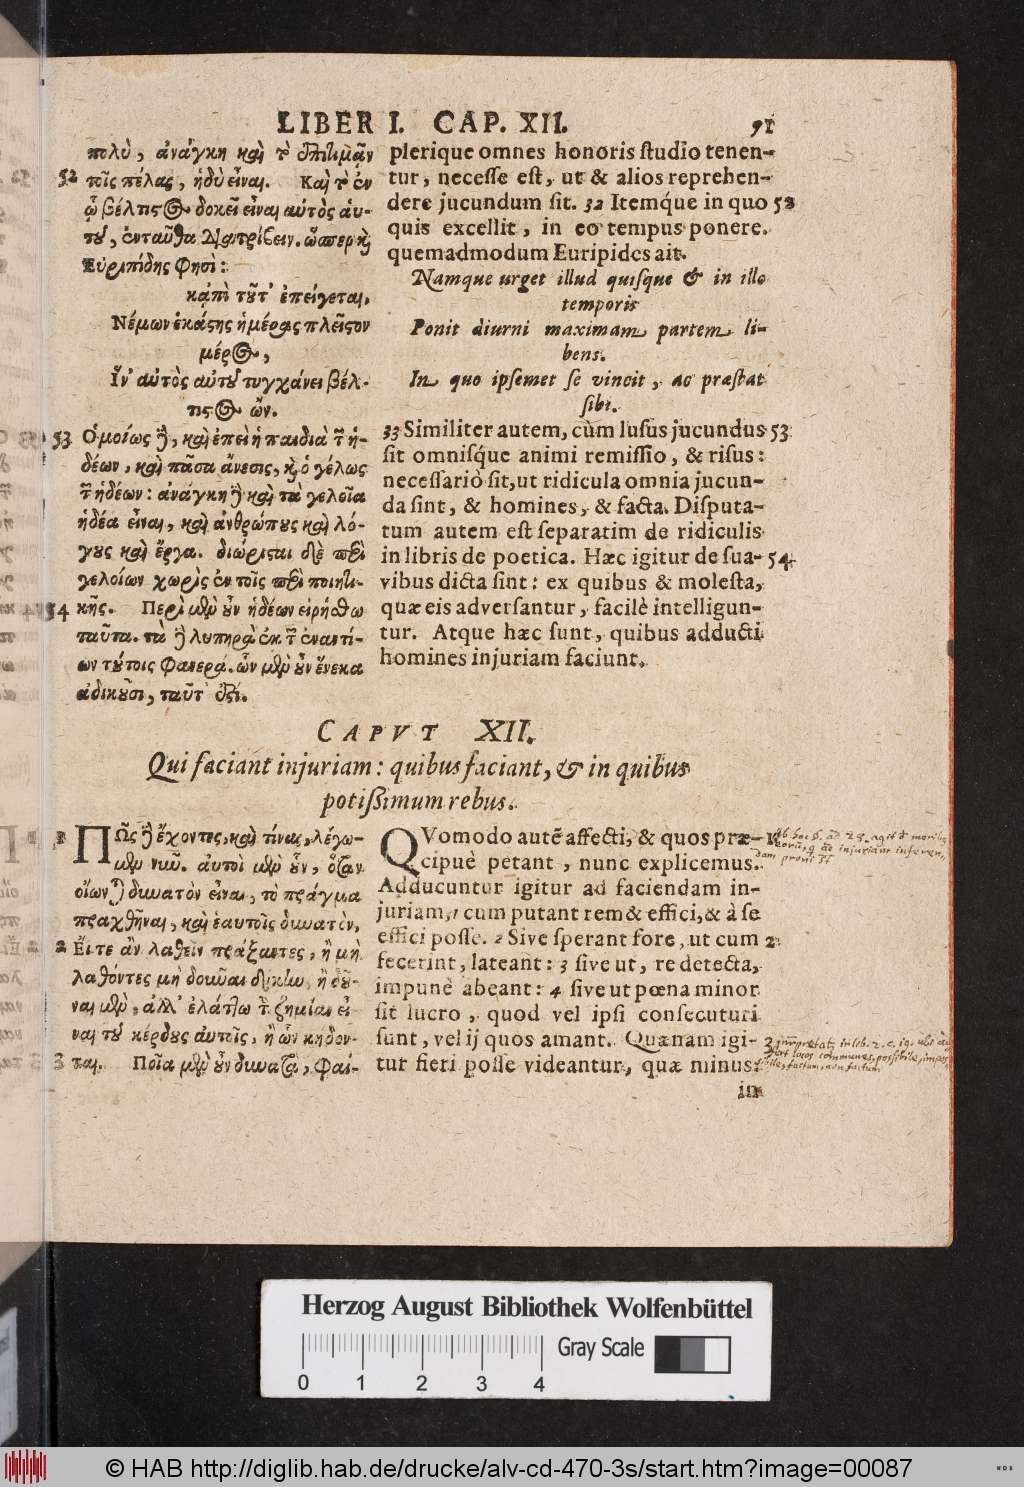 LIBER I. CAP. XII. 91
πολὺ, ἀνάγκη καὶ τὸ ἐπιτιμᾷν
52 τοῖς πέλας, ἡδὺ εἶναι. Καὶ τὸ ἐν
ᾧ βέλτιστος δοκεῖ εἶναι αὐτὸς αὑ-
τοῦ, ἐνταῦθα διατρίβειν. ὥσπερ καὶ
Εὐριπίδης φησὶ:
κᾀπὶ τοῦτ' ἐπείγεται,
Νέμων ἑκάστης ἡμέρας πλεῖστον
μέρος,
Ἵν' αὐτὸς αὐτοῦ τυγχάνει βέλ-
τιστος ὤν.
53 Ὁμοίως δὲ, καὶ ἐπεὶ ἡ παιδιὰ τῶν ἡ-
δέων, καὶ πᾶσα ἄνεσις, καὶ ὁ γέλως
τῶν ἡδέων: ἀνάγκη δὲ καὶ τὰ γελοῖα
ἡδέα εἶναι, καὶ ἀνθρώπους καὶ λό-
γους καὶ ἔργα. διώρισται δὲ περὶ
γελοίων χωρὶς ἐν τοῖς περὶ ποιητι-
54 κῆς. Περὶ μὲν οὖν ἡδέων εἰρήσθω
ταῦτα. τὰ δὲ λυπηρὰ ἐκ τῶν ἐναντί-
ων τούτοις φανερά. ὧν μὲν οὖν ἕνεκα
ἀδικοῦσι, ταῦτ' ἐστί.
plerique omnes honoris ſtudio tenen-
tur, neceſſe eſt, ut & alios reprehen-
dere jucundum ſit. 32 Itemq́ue in quo 52
quis excellit, in eo tempus ponere.
quemadmodum Euripides ait.
Namque urget illud quiſque & in illo
temporis
Ponit diurni maximam partem li-
bens.
In quo ipſemet ſe vincit, ac præſtat
ſibi.
33 Similiter autem, cùm luſus jucundus 53
ſit omniſq́ue animi remiſſio, & riſus:
neceſſariò ſit, ut ridicula omnia jucun-
da ſint, & homines, & facta. Diſputa-
tum autem eſt ſeparatim de ridiculis
in libris de poetica. Hæc igitur de ſua- 54
vibus dicta ſint: ex quibus & moleſta,
quæ eis adverſantur, facilè intelligun-
tur. Atque hæc ſunt, quibus adducti
homines injuriam faciunt.
CAPVT XII.
Qui faciant injuriam: quibus faciant, & in quibus
potiſſimum rebus.
1 ΠΩς δὲ ἔχοντες, καὶ τίνας, λέγω-
μεν νῦν. αὐτοὶ μὲν οὖν, ὅταν
οἴωνται δυνατὸν εἶναι, τὸ πρᾶγμα
πραχθῆναι, καὶ ἑαυτοῖς δυνατὸν,
2 Εἴτε ἂν λαθεῖν πράξαντες, ἢ μὴ
λαθόντες μὴ δοῦναι δίκην, ἢ δοῦ-
ναι μὲν, ἀλλ' ἐλάττω τὴν ζημίαν εἶ-
ναι τοῦ κέρδους αὐτοῖς, ἢ ὧν κηδον-
3 ται. Ποῖα μὲν οὖν δυνατὰ, φαί-
QVomodo autē affecti, & quos præ- 1
cipuè petant, nunc explicemus.
Adducuntur igitur ad faciendam in-
juriam, 1 cum putant rem & effici, & à ſe
effici poſſe. 2 Sive ſperant fore, ut cum 2
fecerint, lateant: 3 ſive ut, re detecta,
impunè abeant: 4 ſive ut pœna minor
ſit lucro, quod vel ipſi conſecuturi
ſunt, vel ij quos amant. Quænam igi- 3
tur fieri poſſe videantur, quæ minus:
in
Herzog August Bibliothek Wolfenbüttel
Gray Scale
0 1 2 3 4
© HAB http://diglib.hab.de/drucke/alv-cd-470-3s/start.htm?image=00087